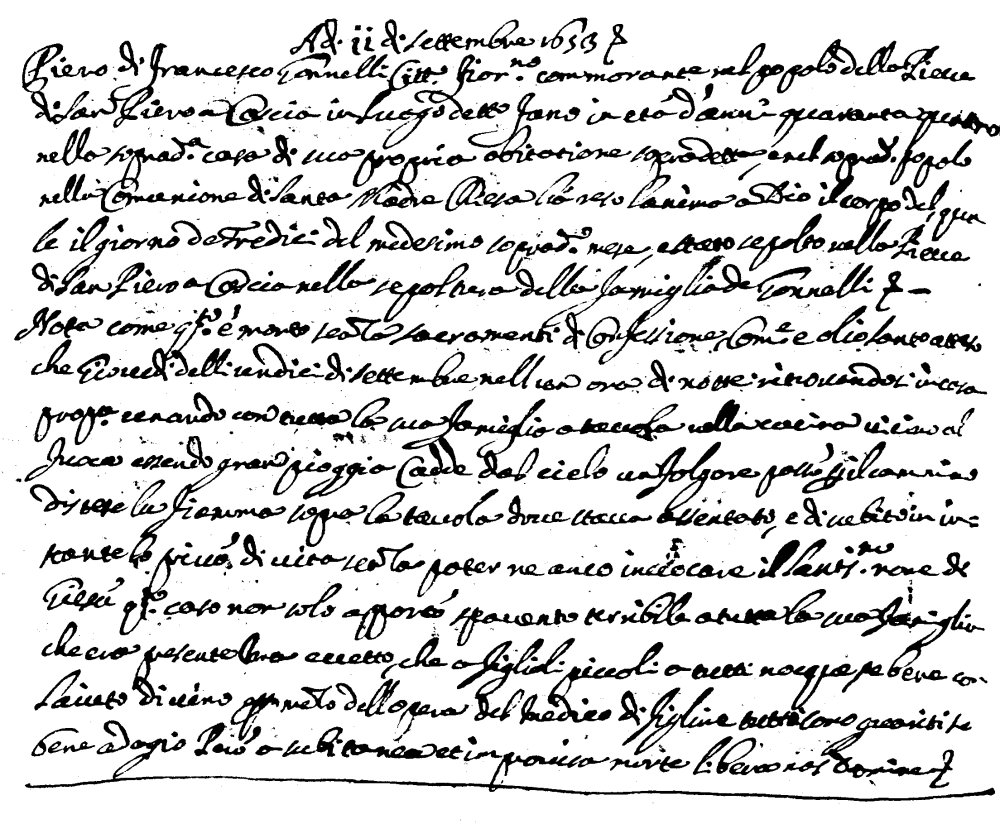 Adi ii di settembre 1653
Piero di Francesco Tonnelli Citt.º fior.no commorante nel popolo della Pieve
di San Piero a Cascia in luogo detto Fano in età d'anni quaranta quattro
nella soprad.a casa di sua propria abitatione sopradetta, e nel soprad.º popolo
nella Comunione di Santa Madre Chiesa ha reso l'anima a Dio il corpo del qua
le il giorno de tredici del medesimo soprad.º mese, è stato sepolto nella Pieve
di San Piero a Cascia nella sepoltura della famiglia de Tonnelli
Nota come q.to è morto senza sacramenti di Confessione, Com.e e olio santo atteso
che Giovedi delli undici di settembre nell un ora di notte ritrovandosi in casa
prop.a cenando con tutta la sua famiglia a tavola nella cucina vicino al
fuoco essendo gran pioggia cadde dal cielo un folgore passò p il cammino
distese la fiamma sopra la tavola dove stava assentato, e di subito in in=
stante lo privò di vita senza poter ne anco invocare il Santis.mo nome di
Giesù q.to caso non solo apportò spavento terribile a tutta la sua famiglia
che era presente ma eccetto che a figlioli piccoli a tutti nocque se bene con
l'aiuto divino del opera del medico di Figline tutti sono guariti se
bene adagio Però a subitanea et improvisa morte libera nos Domine